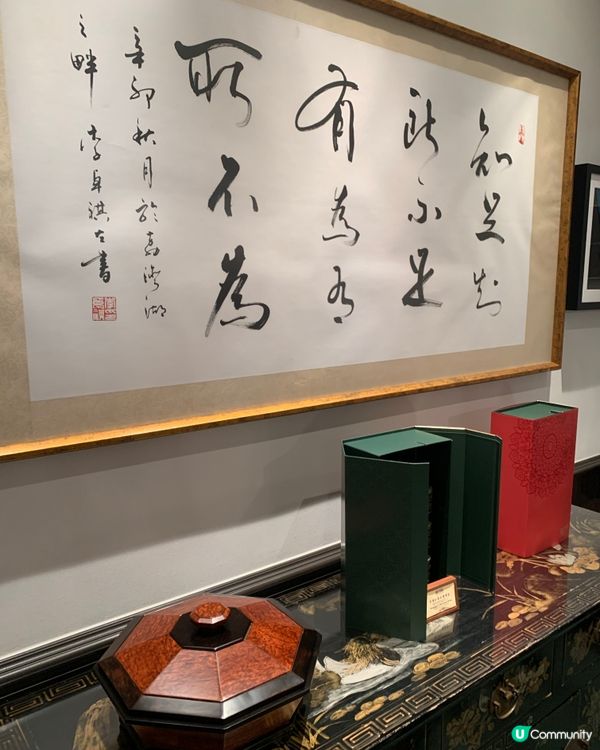 知足知
所不足
有為有
所不為
辛卯秋月於嘉湖
之畔 李卓祺左書
U Community